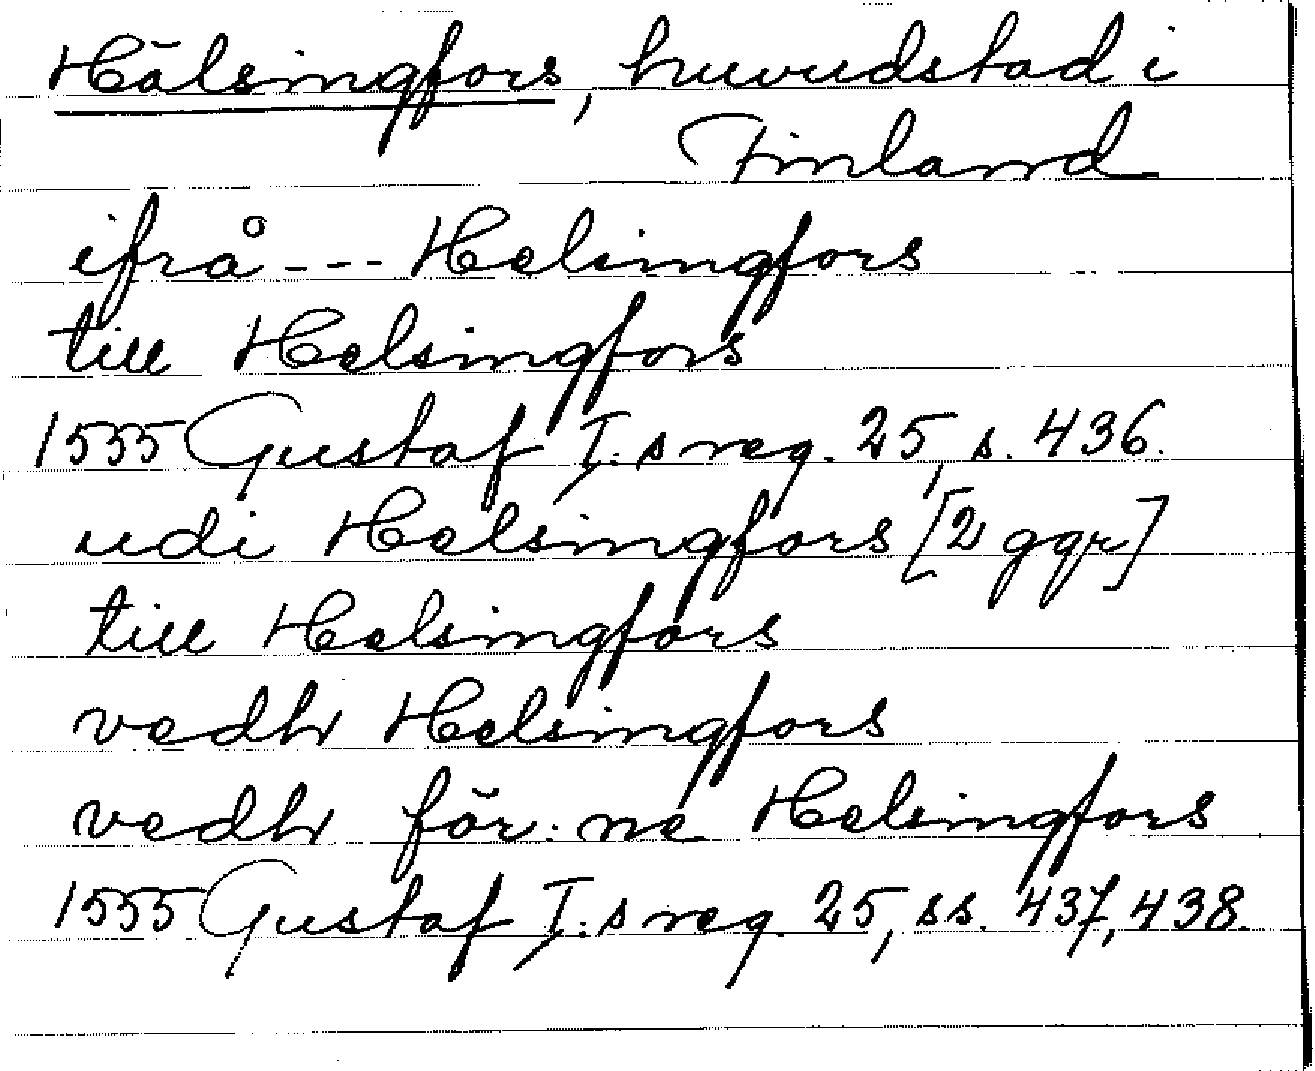 Hälsingfors, huvudstad i
Finland
ifrå --- Helsingfors
till Helsingfors
1555 Gustaf I:s reg. 25, s. 436.
udi Helsingfors [2 ggr]
till Helsingfors
vedh Helsingfors
vedh för:ne Helsingfors
1555 Gustaf I:s reg. 25, ss. 437, 438.